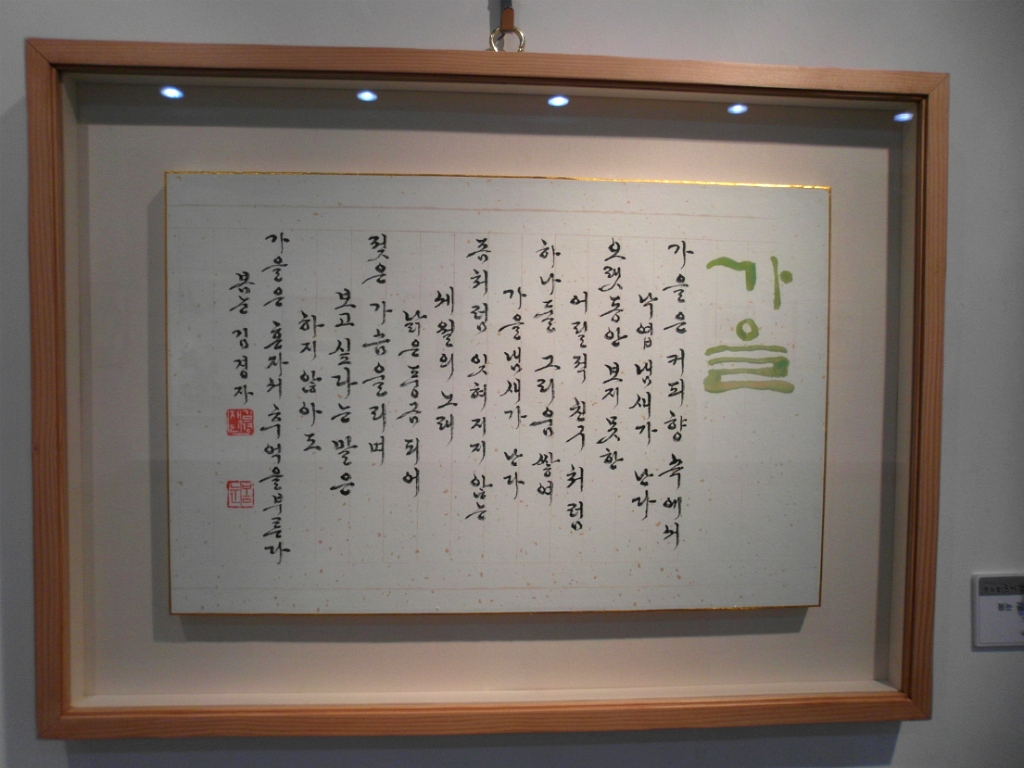 가을
가을은 커피향 속에서
낙엽 냄새가 난다
오랫동안 보지 못한
어릴적 친구처럼
하나둘 그리움 쌓여
가을냄새가 난다
좀처럼 잊혀지지 않는
세월의 노래
낡은풍금 되어
젖은 가슴을
보고싶다는 말은
하지 않아도
가을은 혼자서 추억을부른다
봄눈 김경자